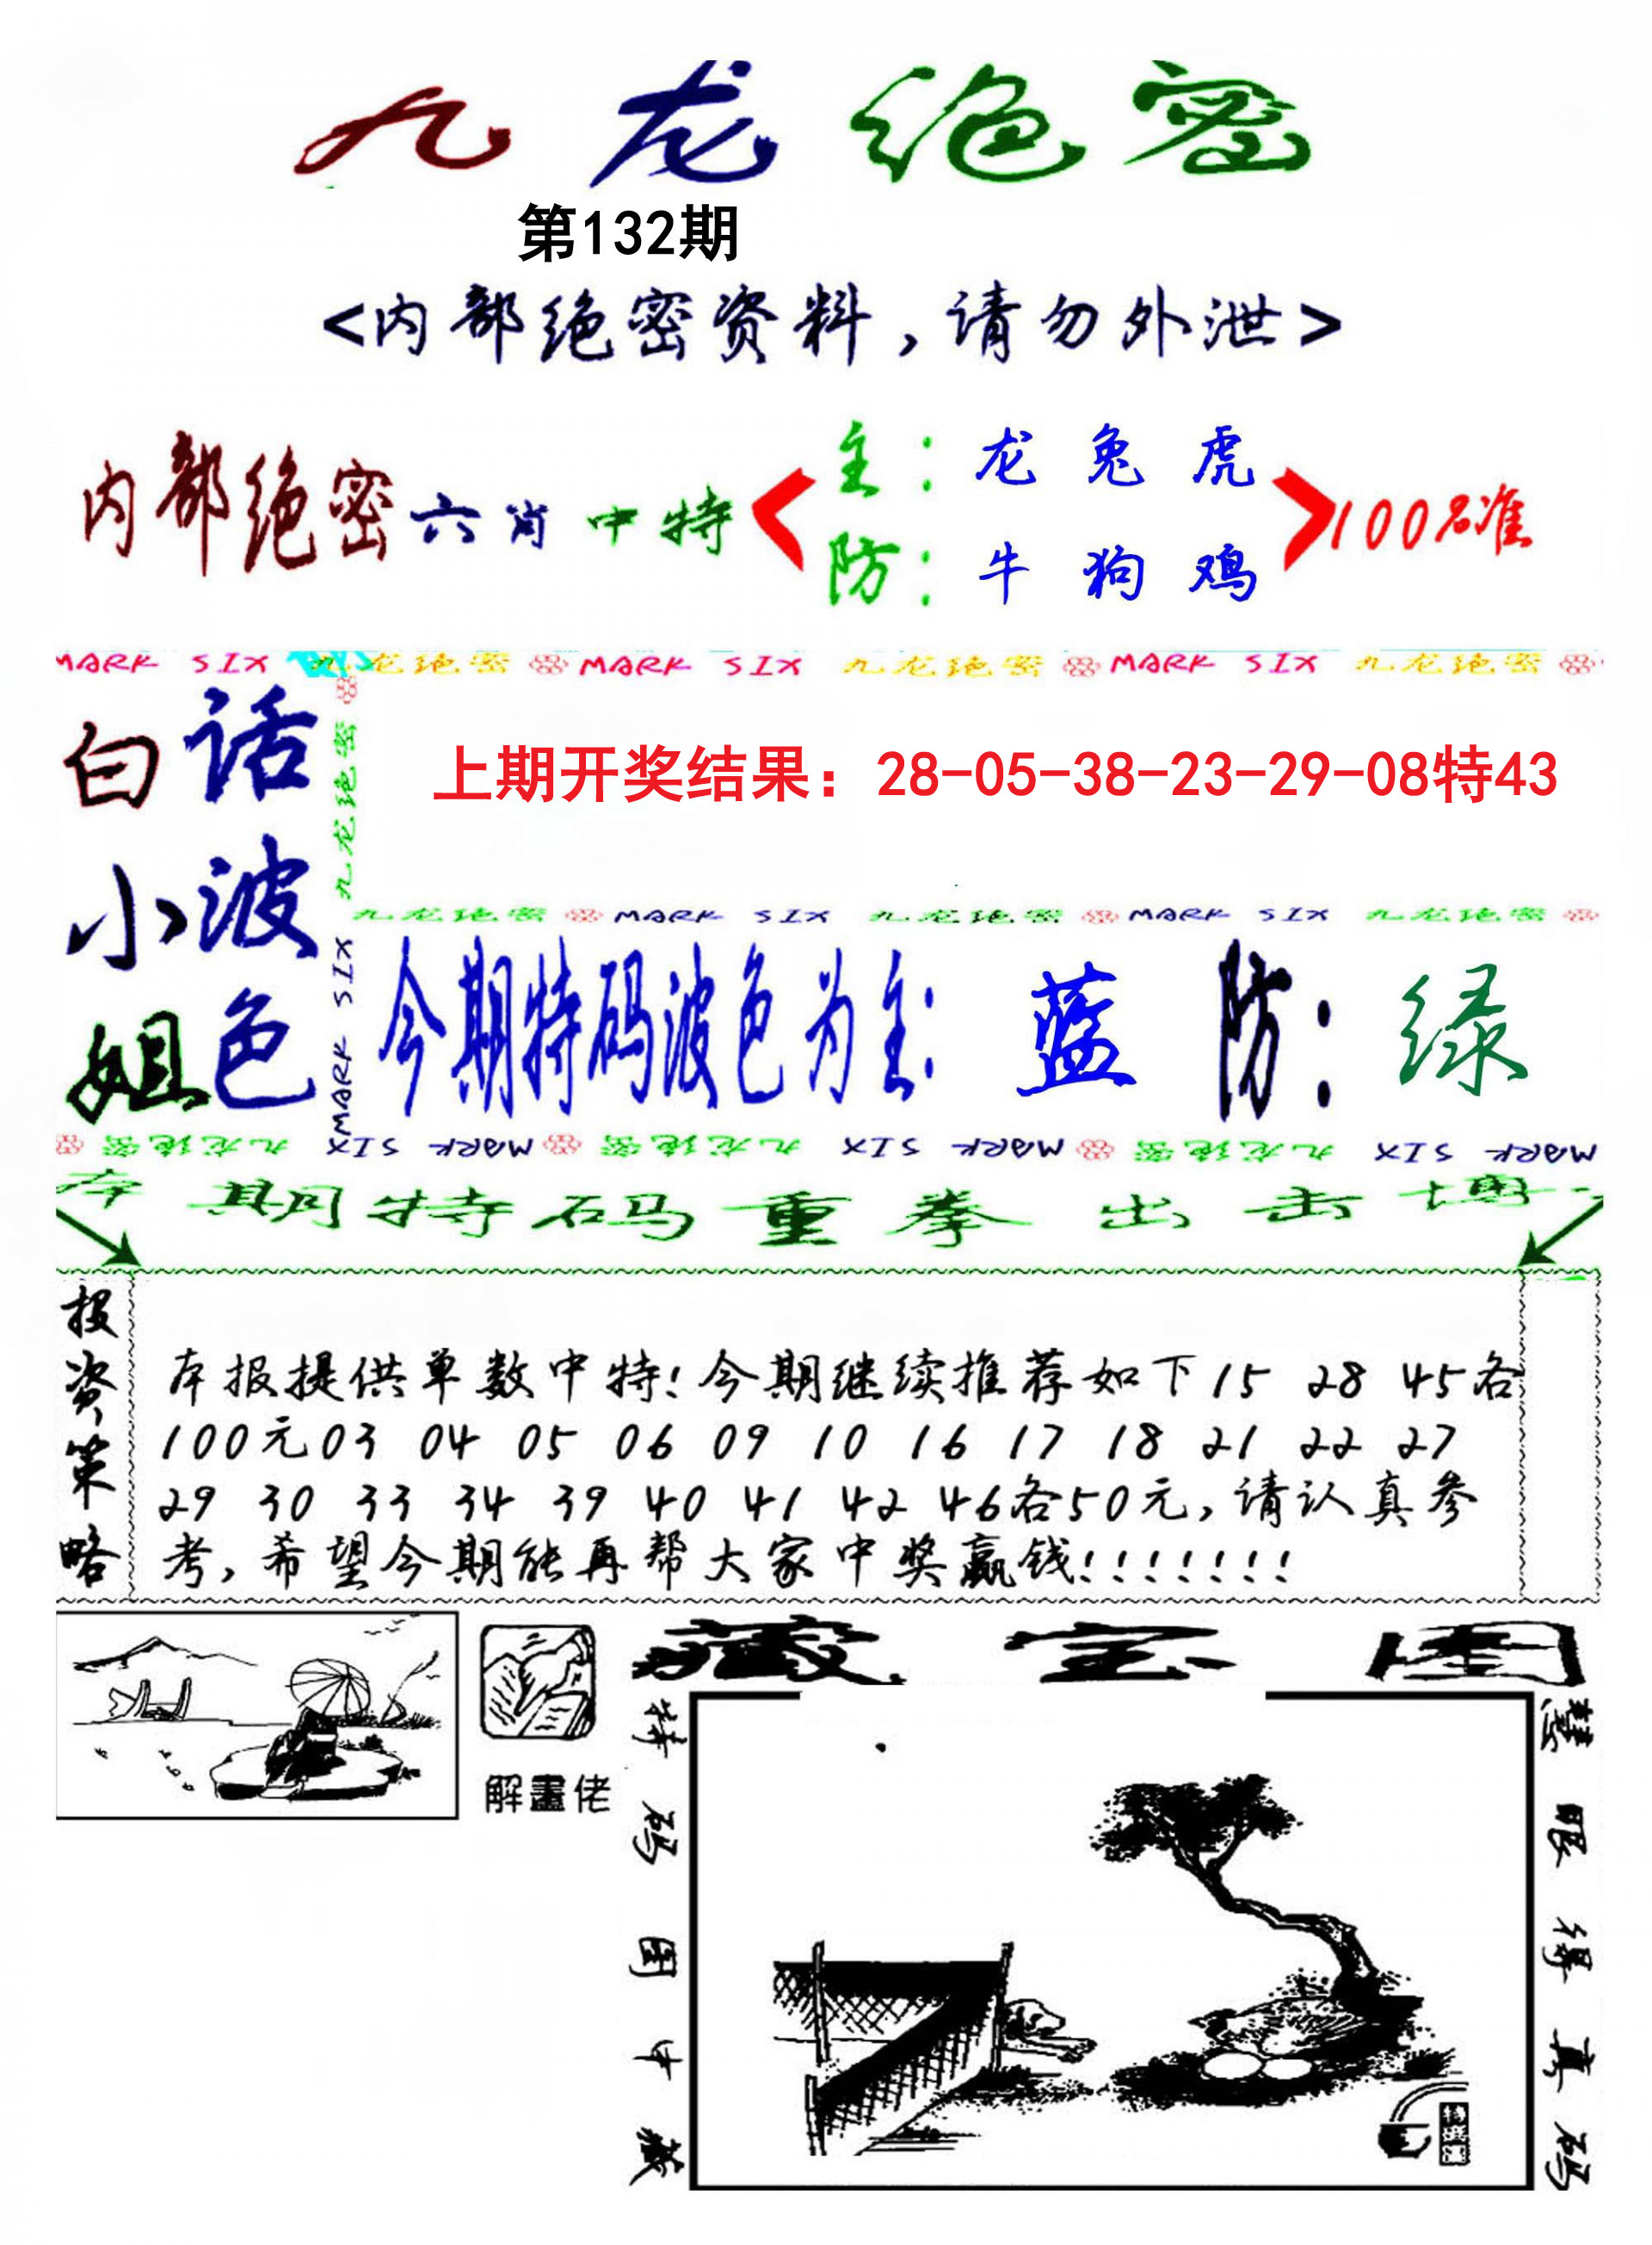 九龙绝密
第132期
<内部绝密资料,请勿外泄>
内部绝密六肖中特<主:龙兔虎 防:牛狗鸡>100%准
MARK SIX 九龙绝密 MARK SIX 九龙绝密 MARK SIX 九龙绝密
白话
小波
姐色
九龙绝密
MARK SIX
上期开奖结果：28-05-38-23-29-08特43
九龙绝密 MARK SIX 九龙绝密 MARK SIX 九龙绝密
今期特码波色为主:蓝 防:绿
九龙绝密 MARK SIX 九龙绝密 MARK SIX 九龙绝密 MARK SIX
本期特码重拳出击博
投资策略
本报提供单数中特!今期继续推荐如下15 28 45各
100元03 04 05 06 09 10 16 17 18 21 22 27
29 30 33 34 39 40 41 42 46各50元,请认真参
考,希望今期能再帮大家中奖赢钱!!!!!!!
解畫佬
藏宝图
特码图中藏
慧眼得真码